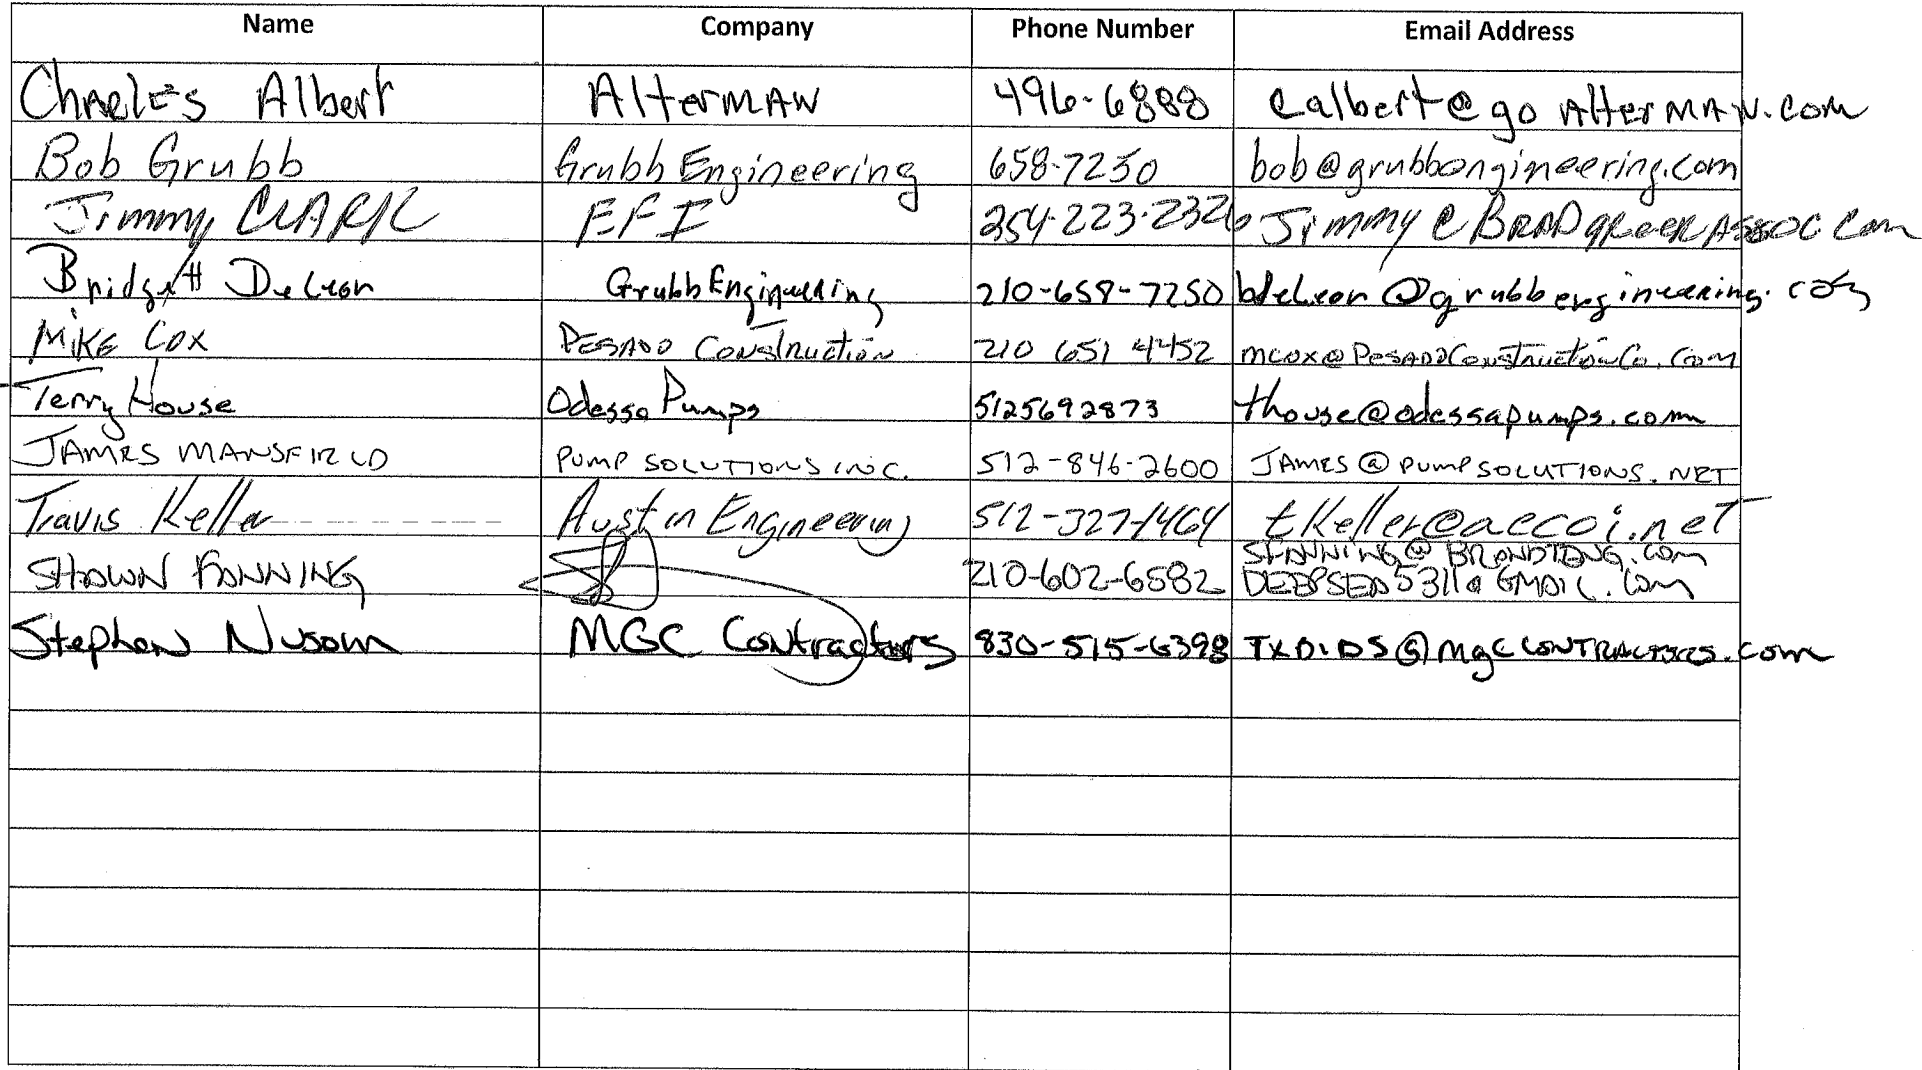 Name Company Phone Number Email Address
Charles Albert Alterman 496-6888 calbert@goalterman.com
Bob Grubb Grubb Engineering 658-7250 bob@grubbengineering.com
Jimmy CLARK EFI 254-223-2326 Jimmy@BRADgReeRASSOC.com
Bridgett DeLeon Grubb Engineering 210-658-7250 bdeleon@grubbengineering.com
MIKE COX PESADO CONSTRUCTION 210 651 4452 mcox@PESADOCONSTRUCTIONCo.Com
Terry House Odessa Pumps 5125692873 thouse@odessapumps.com
JAMES MANSFIELD PUMP SOLUTIONS INC. 512-846-2600 JAMES@PUMPSOLUTIONS.NET
Travis Keller Austin Engineering 512-327-1464 tKeller@aecoi.net
SHAWN FANNING 210-602-6582 SFANNING@BRANDTENG.com
DEEPSEA5311@GMAIL.com
Stephen Nusom MGC Contractors 830-515-6398 TXBIDS@mgcCONTRACTORS.com